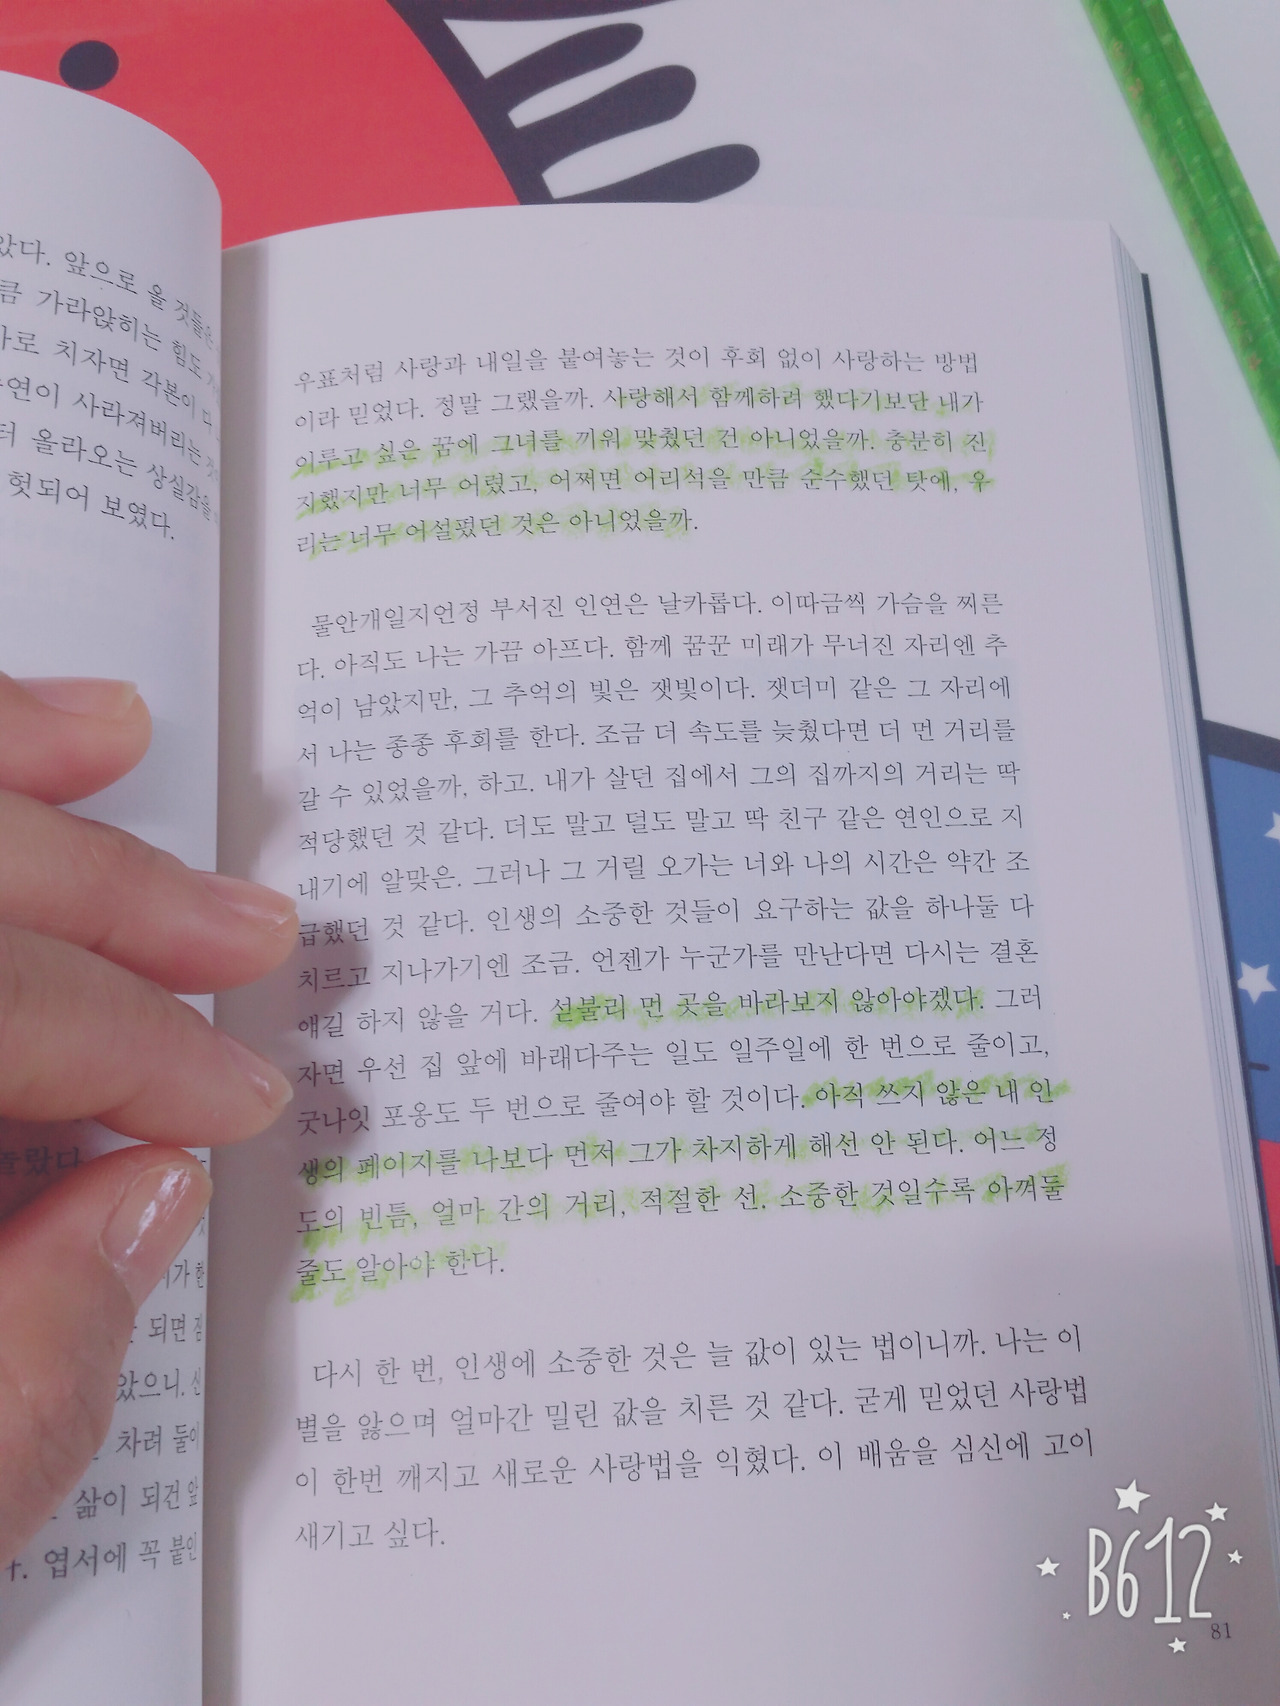 았다. 앞으로 올 것들은
큼 가라앉히는 힘도
치자면 각본이 다
사라져버리는
올라오는 상실감을
헛되어 보였다.
놀랐다
되면
았으니.
차려 둘이
삶이 되건
엽서에 꼭 붙인
우표처럼 사랑과 내일을 붙여놓는 것이 후회 없이 사랑하는 방법
이라 믿었다. 정말 그랬을까. 사랑해서 함께하려 했다기보단 내가
이루고 싶은 꿈에 그녀를 끼워 맞췄던 건 아니었을까. 충분히 진
지했지만 너무 어렸고, 어쩌면 어리석을 만큼 순수했던 탓에, 우
리는 너무 어설펐던 것은 아니었을까.
물안개일지언정 부서진 인연은 날카롭다. 이따금씩 가슴을 찌른
다. 아직도 나는 가끔 아프다. 함께 꿈꾼 미래가 무너진 자리엔 추
억이 남았지만, 그 추억의 빛은 잿빛이다. 잿더미 같은 그 자리에
서 나는 종종 후회를 한다. 조금 더 속도를 늦췄다면 더 먼 거리를
갈 수 있었을까, 하고. 내가 살던 집에서 그의 집까지의 거리는 딱
적당했던 것 같다. 더도 말고 덜도 말고 딱 친구 같은 연인으로 지
내기에 알맞은. 그러나 그 거릴 오가는 너와 나의 시간은 약간 조
급했던 것 같다. 인생의 소중한 것들이 요구하는 값을 하나둘 다
치르고 지나가기엔 조금. 언젠가 누군가를 만난다면 다시는 결혼
얘길 하지 않을 거다. 섣불리 먼 곳을 바라보지 않아야겠다. 그러
자면 우선 집 앞에 바래다주는 일도 일주일에 한 번으로 줄이고,
굿나잇 포옹도 두 번으로 줄여야 할 것이다. 아직 쓰지 않은 내 인
생의 페이지를 나보다 먼저 그가 차지하게 해선 안 된다. 어느 정
도의 빈틈, 얼마 간의 거리, 적절한 선. 소중한 것일수록 아껴둘
줄도 알아야 한다.
다시 한 번, 인생에 소중한 것은 늘 값이 있는 법이니까. 나는 이
별을 앓으며 얼마간 밀린 값을 치른 것 같다. 굳게 믿었던 사랑법
이 한번 깨지고 새로운 사랑법을 익혔다. 이 배움을 심신에 고이
새기고 싶다.
B612
81